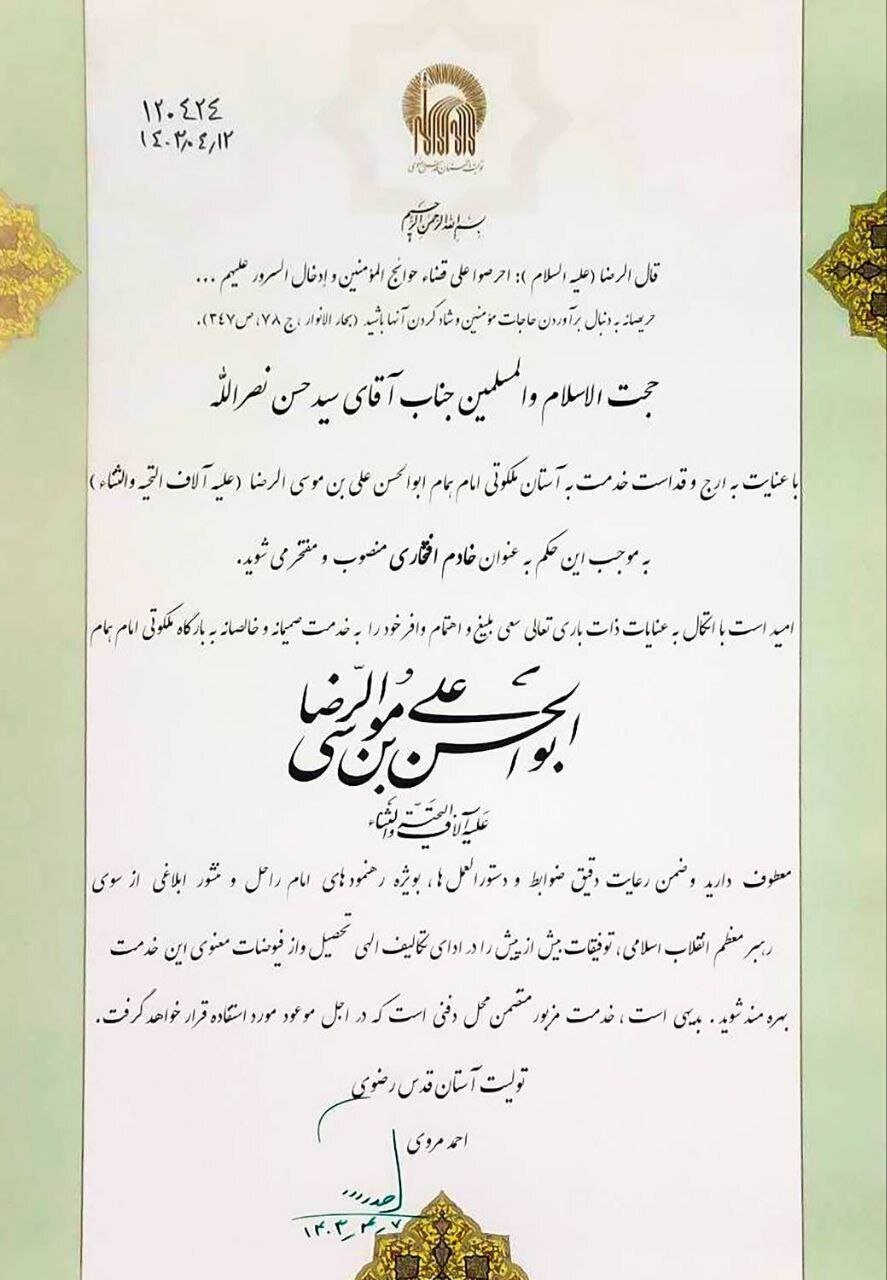 ١٢٠٤٢٤
١٤٠٣٫٠٤٫١٢
تولیت آستان قدس رضوی
بسم الله الرحمن الرحیم
قال الرضا (علیه السلام): احرصوا علی قضاء حوائج المؤمنین و إدخال السرور علیهم ...
حریصانه به دنبال برآوردن حاجات مؤمنین و شاد کردن آنها باشید (بحار الانوار، ج ۷۸، ص ۳٤۷).
حجت الاسلام والمسلمین جناب آقای سید حسن نصرالله
با عنایت به ارج و قداست خدمت به آستان ملکوتی امام همام ابوالحسن علی بن موسی الرضا (علیه آلاف التحیه والثناء)
به موجب این حکم به عنوان خادم افتخاری منصوب و مفتخر می شوید.
امید است با اتکال به عنایات ذات باری تعالی سعی بلیغ و اهتمام وافر خود را به خدمت صمیمانه و خالصانه به بارگاه ملکوتی امام همام
ابوالحسن علی بن موسی الرضا
علیه آلاف التحیة والثناء
معطوف دارید و ضمن رعایت دقیق ضوابط و دستورالعمل ها، بویژه رهنمودهای امام راحل و منشور ابلاغی از سوی
رهبر معظم انقلاب اسلامی، توفیقات بیش از پیش را در ادای تکالیف الهی تحصیل و از فیوضات معنوی این خدمت
بهره مند شوید. بدیهی است، خدمت مزبور متضمن محل دفنی است که در اجل موعود مورد استفاده قرار خواهد گرفت.
تولیت آستان قدس رضوی
احمد مروی
۱۴۰۳٫۴٫۷